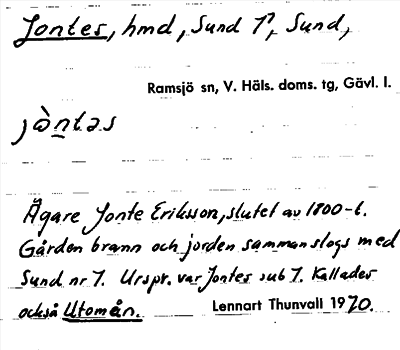 Jontes, hmd, Sund 1⁷, Sund,
Ramsjö sn, V. Häls. doms. tg, Gävl. l.
jὼn̲təs
Ägare Jonte Eriksson, slutet av 1800-t.
Gården brann och jorden sammanslogs med
Sund nr 7. Urspr. var Jontes sub 7. Kallades
också Utomån.
Lennart Thunvall 1970.